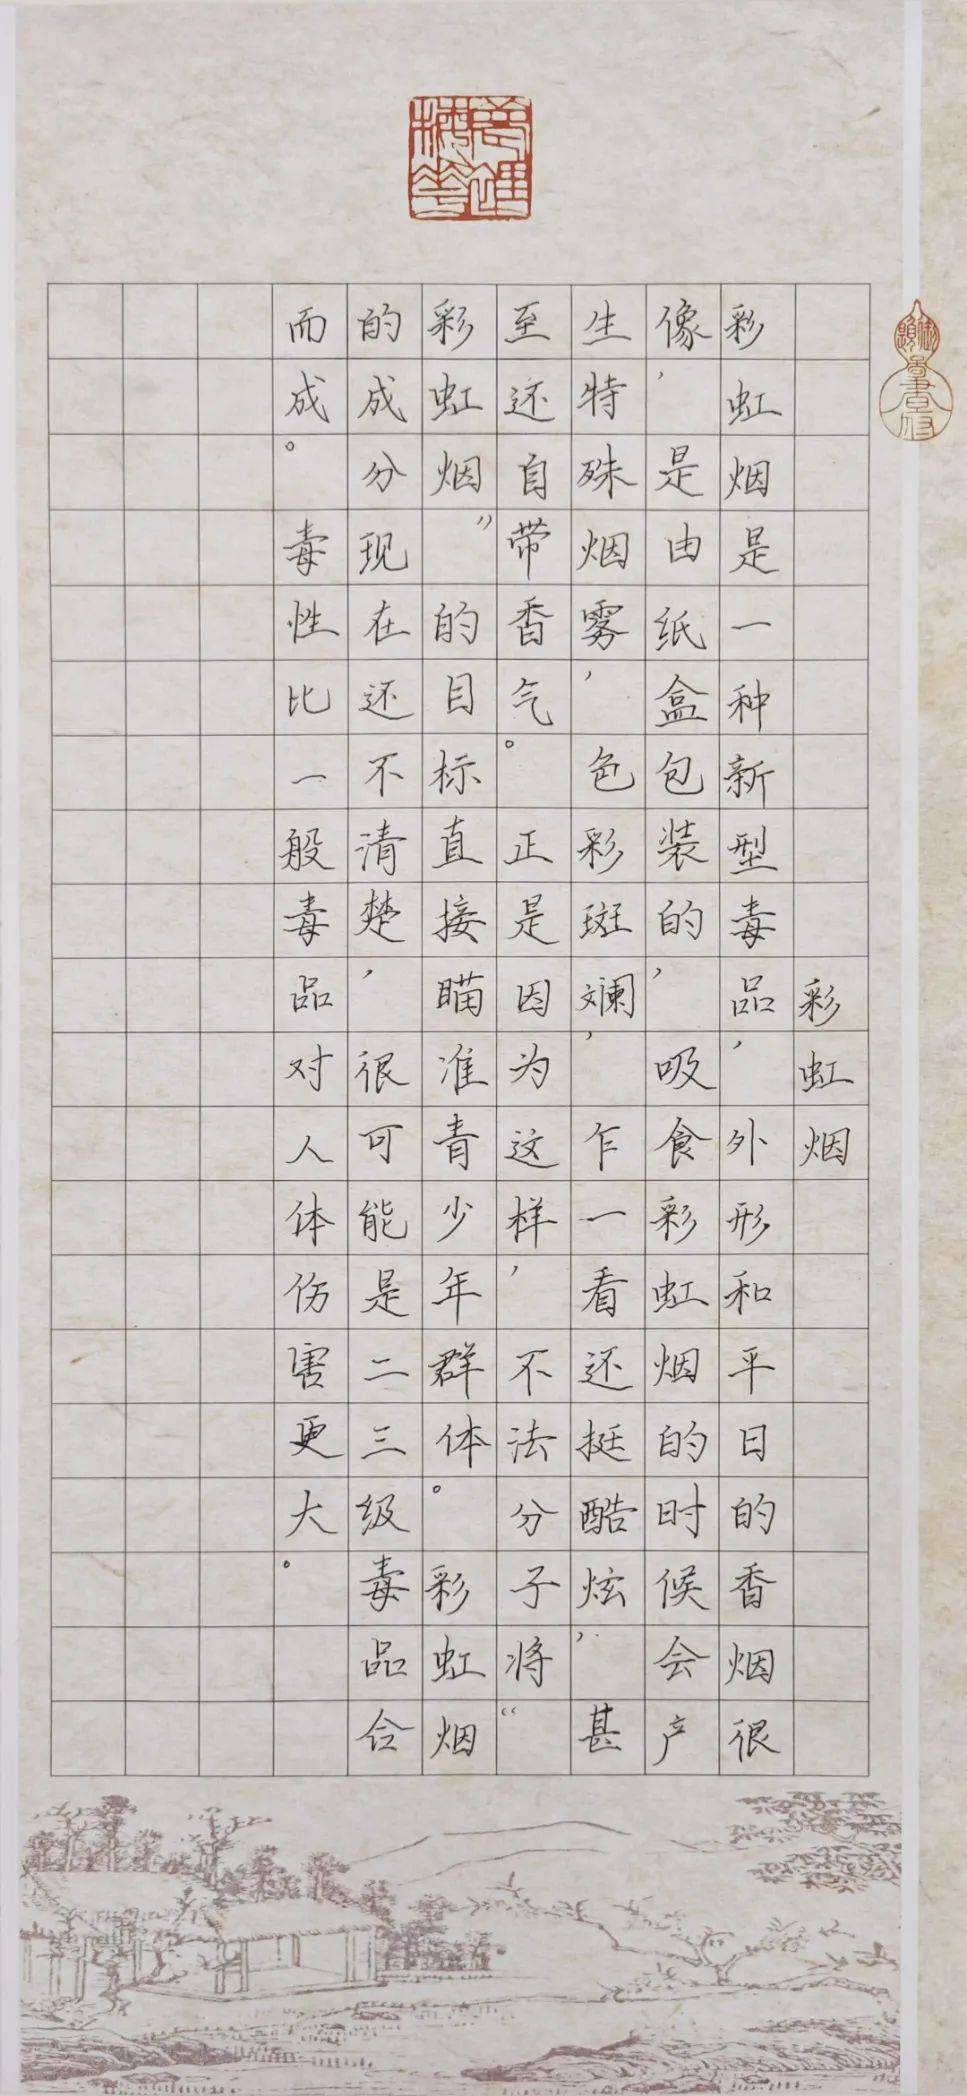 彩虹烟
彩虹烟是一种新型毒品，外形和平日的香烟很
像，是由纸盒包装的，吸食彩虹烟的时候会产
生特殊烟雾，色彩斑斓，乍一看还挺酷炫，甚
至还自带香气。正是因为这样，不法分子将“
彩虹烟”的目标直接瞄准青少年群体。彩虹烟
的成分现在还不清楚，很可能是二三级毒品合
而成。毒性比一般毒品对人体伤害更大。